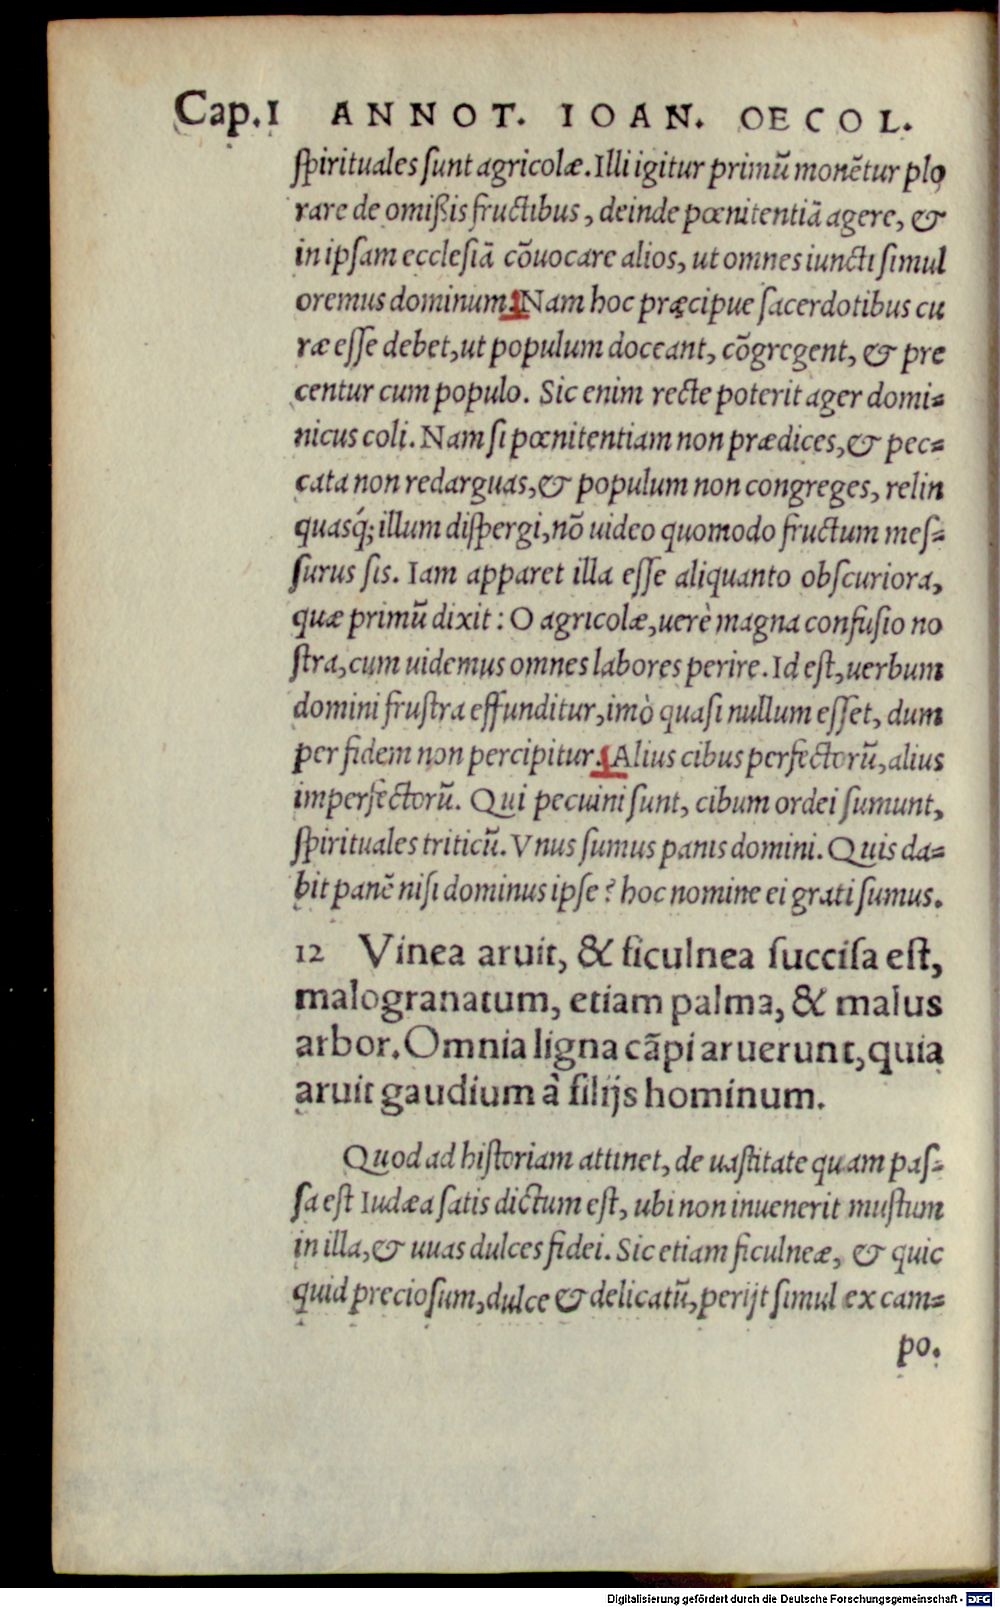 Cap.1 ANNOT. IOAN. OECOL.
ſpirituales ſunt agricolæ. Illi igitur primũ monẽtur plo
rare de omißis fructibus, deinde pœnitentiã agere, &
in ipſam eccleſiã cõuocare alios, ut omnes iuncti ſimul
oremus dominum. Nam hoc præcipue ſacerdotibus cu
ræ eſſe debet, ut populum doceant, cõgregent, & pre
centur cum populo. Sic enim recte poterit ager domi=
nicus coli. Nam ſi pœnitentiam non prædices, & pec=
cata non redarguas, & populum non congreges, relin
quasq́; illum diſpergi, nõ uideo quomodo fructum meſ=
ſurus ſis. Iam apparet illa eſſe aliquanto obſcuriora,
quæ primũ dixit: O agricolæ, uerè magna confuſio no
ſtra, cum uidemus omnes labores perire. Id eſt, uerbum
domini fruſtra effunditur, imò quaſi nullum eſſet, dum
per fidem non percipitur. Alius cibus perfectorũ, alius
imperfectorũ. Qui pecuini ſunt, cibum ordei ſumunt,
ſpirituales triticũ. Vnus ſumus panis domini. Quis da=
bit panẽ niſi dominus ipſe? hoc nomine ei grati ſumus.
12 Vinea aruit, & ficulnea ſucciſa eſt,
malogranatum, etiam palma, & malus
arbor. Omnia ligna cãpi aruerunt, quia
aruit gaudium à filijs hominum.
Quod ad hiſtoriam attinet, de uaſtitate quam paſ=
ſa eſt Iudæa ſatis dictum eſt, ubi non inuenerit muſtum
in illa, & uuas dulces fidei. Sic etiam ficulneæ, & quic
quid precioſum, dulce & delicatũ, perijt ſimul ex cam=
po.
Digitalisierung gefördert durch die Deutsche Forschungsgemeinschaft - DFG